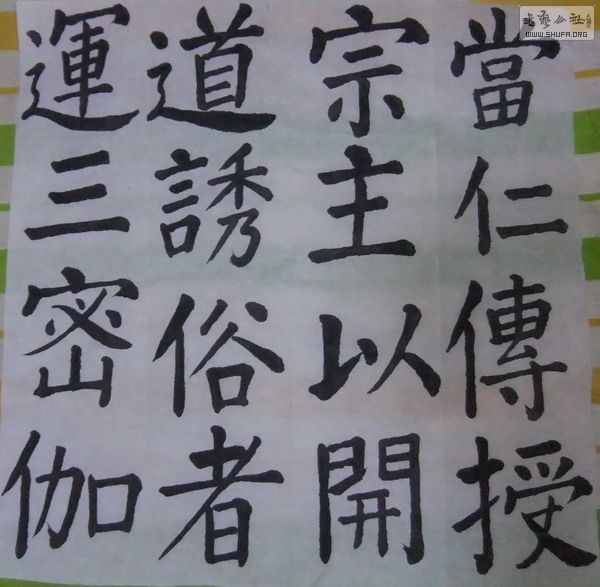 當仁傳授
宗主以開
道誘俗者
運三密伽
WWW.SHUFA.ORG